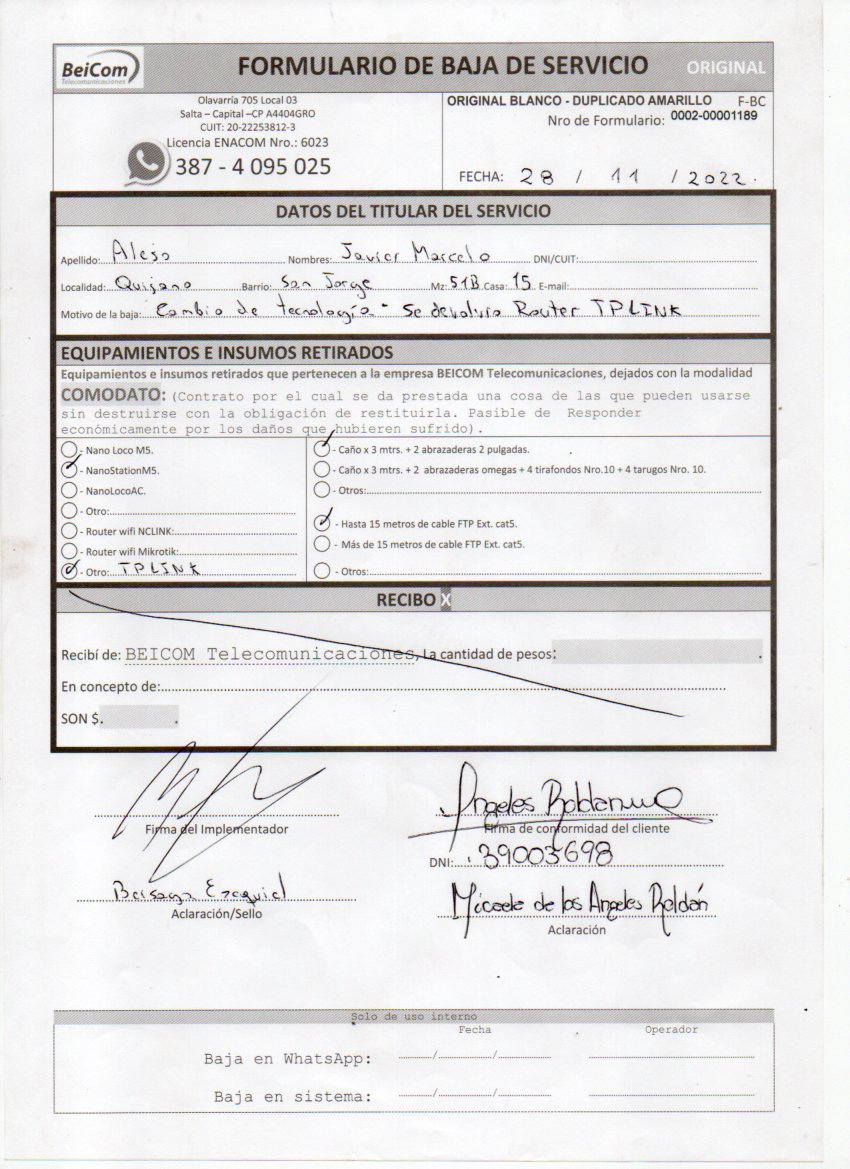 BeiCom
Telecomunicaciones
FORMULARIO DE BAJA DE SERVICIO ORIGINAL
Olavarría 705 Local 03
Salta – Capital –CP A4404GRO
CUIT: 20-22253812-3
Licencia ENACOM Nro.: 6023
387 - 4 095 025
ORIGINAL BLANCO - DUPLICADO AMARILLO F-BC
Nro de Formulario: 0002-00001189
FECHA: 28 / 11 / 2022.
DATOS DEL TITULAR DEL SERVICIO
Apellido: Alejo Nombres: Javier Marcelo DNI/CUIT:
Localidad: Quijano Barrio: San Jorge Mz: 51B Casa: 15 E-mail:
Motivo de la baja: Cambio de tecnología - Se devolvió Router TPLINK
EQUIPAMIENTOS E INSUMOS RETIRADOS
Equipamientos e insumos retirados que pertenecen a la empresa BEICOM Telecomunicaciones, dejados con la modalidad
COMODATO: (Contrato por el cual se da prestada una cosa de las que pueden usarse
sin destruirse con la obligación de restituirla. Pasible de Responder
económicamente por los daños que hubieren sufrido).
- Nano Loco M5.
- NanoStationM5.
- NanoLocoAC.
- Otro:
- Router wifi NCLINK:
- Router wifi Mikrotik:
- Otro: TPLINK
- Caño x 3 mtrs. + 2 abrazaderas 2 pulgadas.
- Caño x 3 mtrs. + 2 abrazaderas omegas + 4 tirafondos Nro.10 + 4 tarugos Nro. 10.
- Otros:
- Hasta 15 metros de cable FTP Ext. cat5.
- Más de 15 metros de cable FTP Ext. cat5.
- Otros:
RECIBO X
Recibí de: BEICOM Telecomunicaciones, La cantidad de pesos: .
En concepto de:
SON $. .
Firma del Implementador
Angeles Roldan
Firma de conformidad del cliente
DNI: 39003698
Ezequiel
Aclaración/Sello
Micaela de los Angeles Roldán
Aclaración
Solo de uso interno
Fecha Operador
Baja en WhatsApp: / /
Baja en sistema: / /